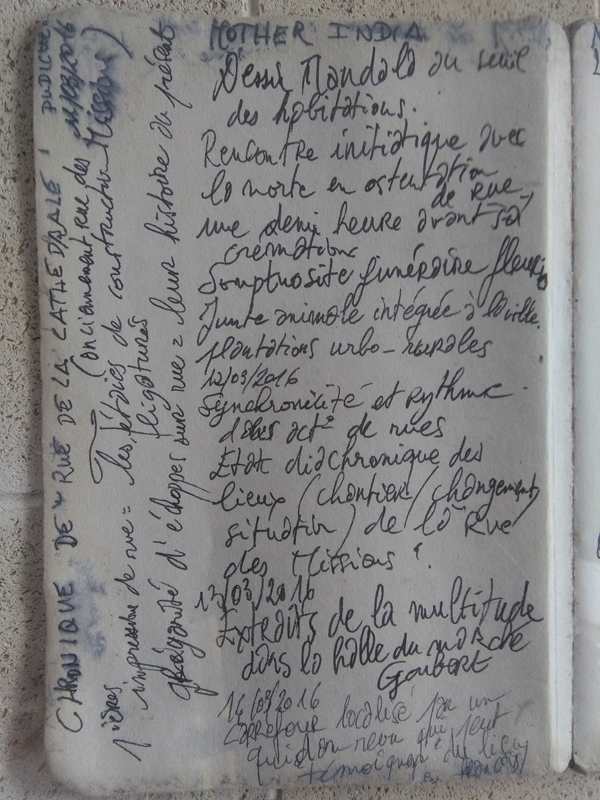 CHRONIQUE DE "RUE DE LA CATHEDRALE"
11/03/2016
(anciennement rue des Missions)
1ières impression de rue = les étaies de construction
ligatures
d'échoppes sur rue = leur histoire du présent
MOTHER INDIA
Dessin Mandala au seuil
des habitations.
Rencontre initiatique avec
la morte en ostentation
de rue,
une demi heure avant sa
crémation
Somptuosité funéraire fleurie
Junte animale intégrée à la ville.
plantations urbo-rurales
12/03/2016
Synchronicité et rythme
des act° de rues
Etat diachronique des
lieux (chantier/changement/
situation) de la Rue
des Missions
13/03/2016
Extraits de la multitude
dans la halle du marché
Goubert
16/03/2016
Carrefour localisé par un
qui peut
témoigner du lieu